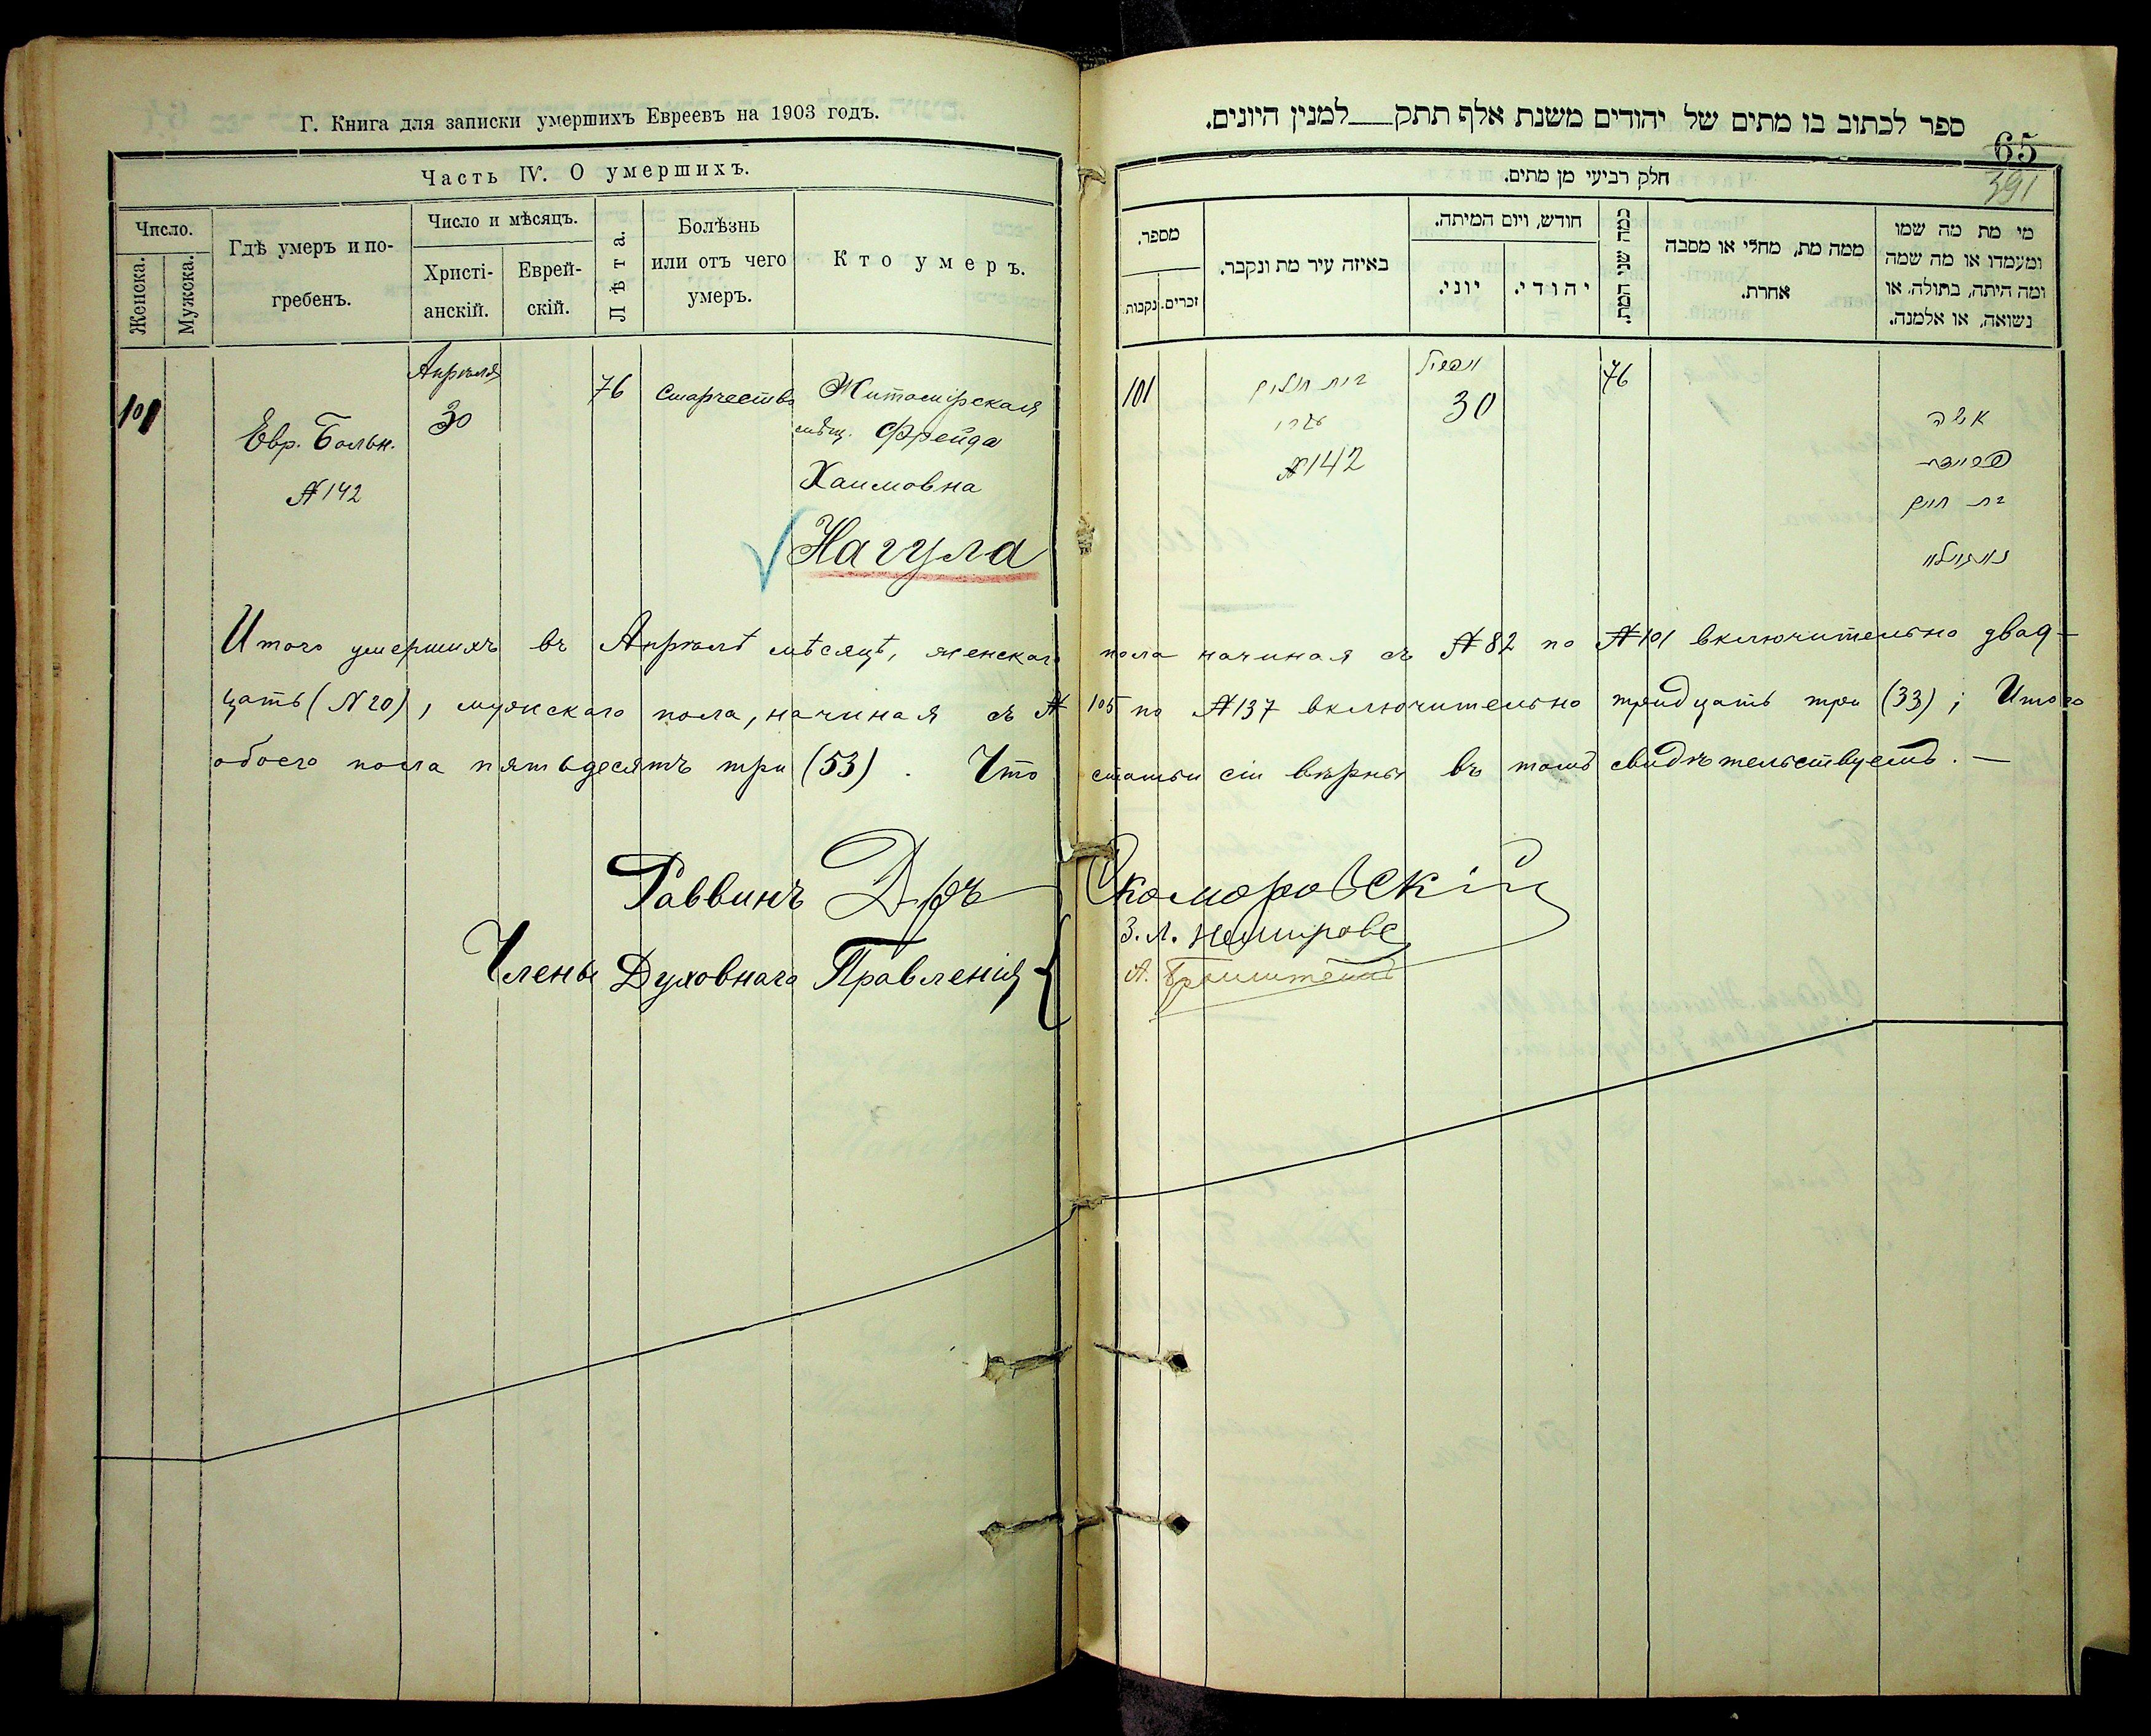 Г. Книга для записки умершихъ Евреевъ на 1903 годъ.
Часть IV. О умершихъ.
Число.
Женска.
Мужска.
Гдѣ умеръ и по-
гребенъ.
Число и мѣсяцъ.
Христі-
анскій.
Еврей-
скій.
Лѣта.
Болѣзнь
или отъ чего
умеръ.
Кто умеръ.
101
Евр. Больн.
№ 142
Апрѣля
30
76
старчества
Житомірская
мѣщ. Фрейда
Хаимовна
Нагула
ספר לכתוב בו מתים של יהודים משנת אלף תתק למנין היונים.
65
391
חלק רביעי מן מתים.
מספר.
נקבות.
זכרים.
באיזה עיר מת ונקבר.
חודש, ויום המיתה.
יוני.
יהודי.
כמה שני המת.
ממה מת, מחלי או מסבה
אחרת.
מי מת מה שמו
ומעמדו או מה שמה
ומה היתה, בתולה, או
נשואה, או אלמנה.
101
בית חולים
№ 142
אפריל
30
76
אשה
פריידע
בת חיים
נאגולא
Итого умершихъ въ Апрѣлѣ мѣсяцѣ, женскаго пола начиная съ № 82 по № 101 включительно двад-
цать (№ 20), мужскаго пола, начиная съ № 105 по № 137 включительно тридцать три (33); Итого
обоего пола пятьдесятъ три (53). Что статьи сіи вѣрны въ томъ свидѣтельствуетъ. —
Раввинъ Д-ръ Скоморовскій
Члены Духовнаго Правленія
З. Л. Немировс
А. Бронштейнъ